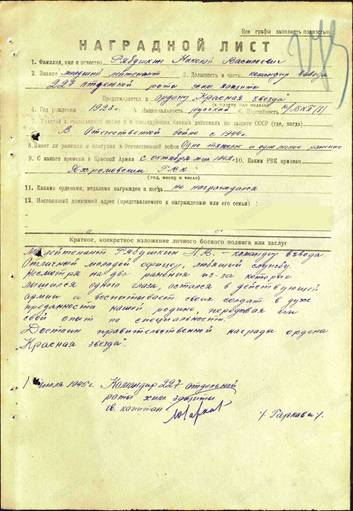 Все графы заполнять полностью
НАГРАДНОЙ ЛИСТ
1. Фамилия, имя и отчество Рябушкин Максим Васильевич
2. Звание младший лейтенант 3. Должность и часть командир взвода
227 отдельной роты хим. защиты
Представляется к ордену "Красная звезда"
4. Год рождения 1923 г. 5. Национальность русский 6. ВКП(б)
7. Участие в гражданской войне и в последующих боевых действиях по защите СССР (где, когда)
В Отечественной войне с 1942 г.
8. Имеет ли ранения и контузии в Отечественной войне Одно тяжелое и одно легкое ранение
9. С какого времени в Красной Армии с октября 1942 г. 10. Каким РВК призван
РВК
(год, месяц и число)
11. Какими орденами, медалями награжден и когда не награждался
12. Постоянный домашний адрес (представляемого к награждению или его семьи)
Краткое, конкретное изложение личного боевого подвига или заслуг
Мл. лейтенант Рябушкин М.В. - командир взвода.
Отличный молодой офицер, любящий службу.
Несмотря на два ранения из-за которых
лишился одного глаза, остался в действующей
армии и воспитывает своих солдат в духе
преданности нашей родине, передавая им
свой опыт по специальности.
Достоин правительственной награды ордена
"Красная звезда".
1945 г. Командир 227 отдельной
роты хим. защиты
капитан